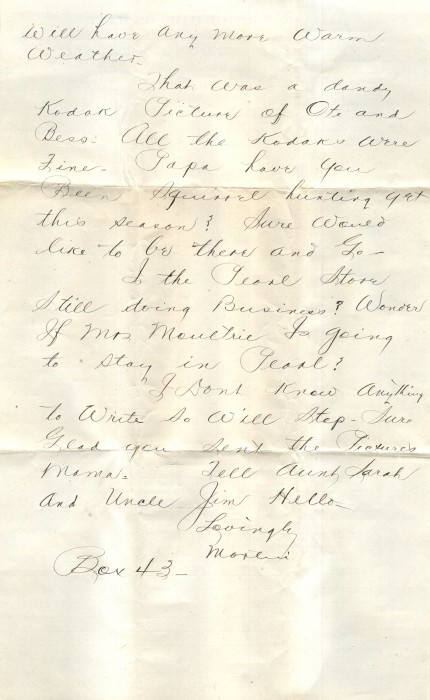 Will have Any More Warm
Weather-
That was a dandy
Kodak Picture of Ote and
Bess. All the Kodaks were
Fine- Papa have you
Been Squirrel hunting yet
this season? Sure Would
like to be there and Go-
Is the Pearl Store
Still doing Business? Wonder
If Mrs Moultrie Is going
to stay in Pearl?
I Dont Know Anything
to Write So Will Stop- Sure
Glad you sent the Pictures
Mama- Tell Aunt Sarah
And Uncle Jim Hello-
Lovingly
Box 43-